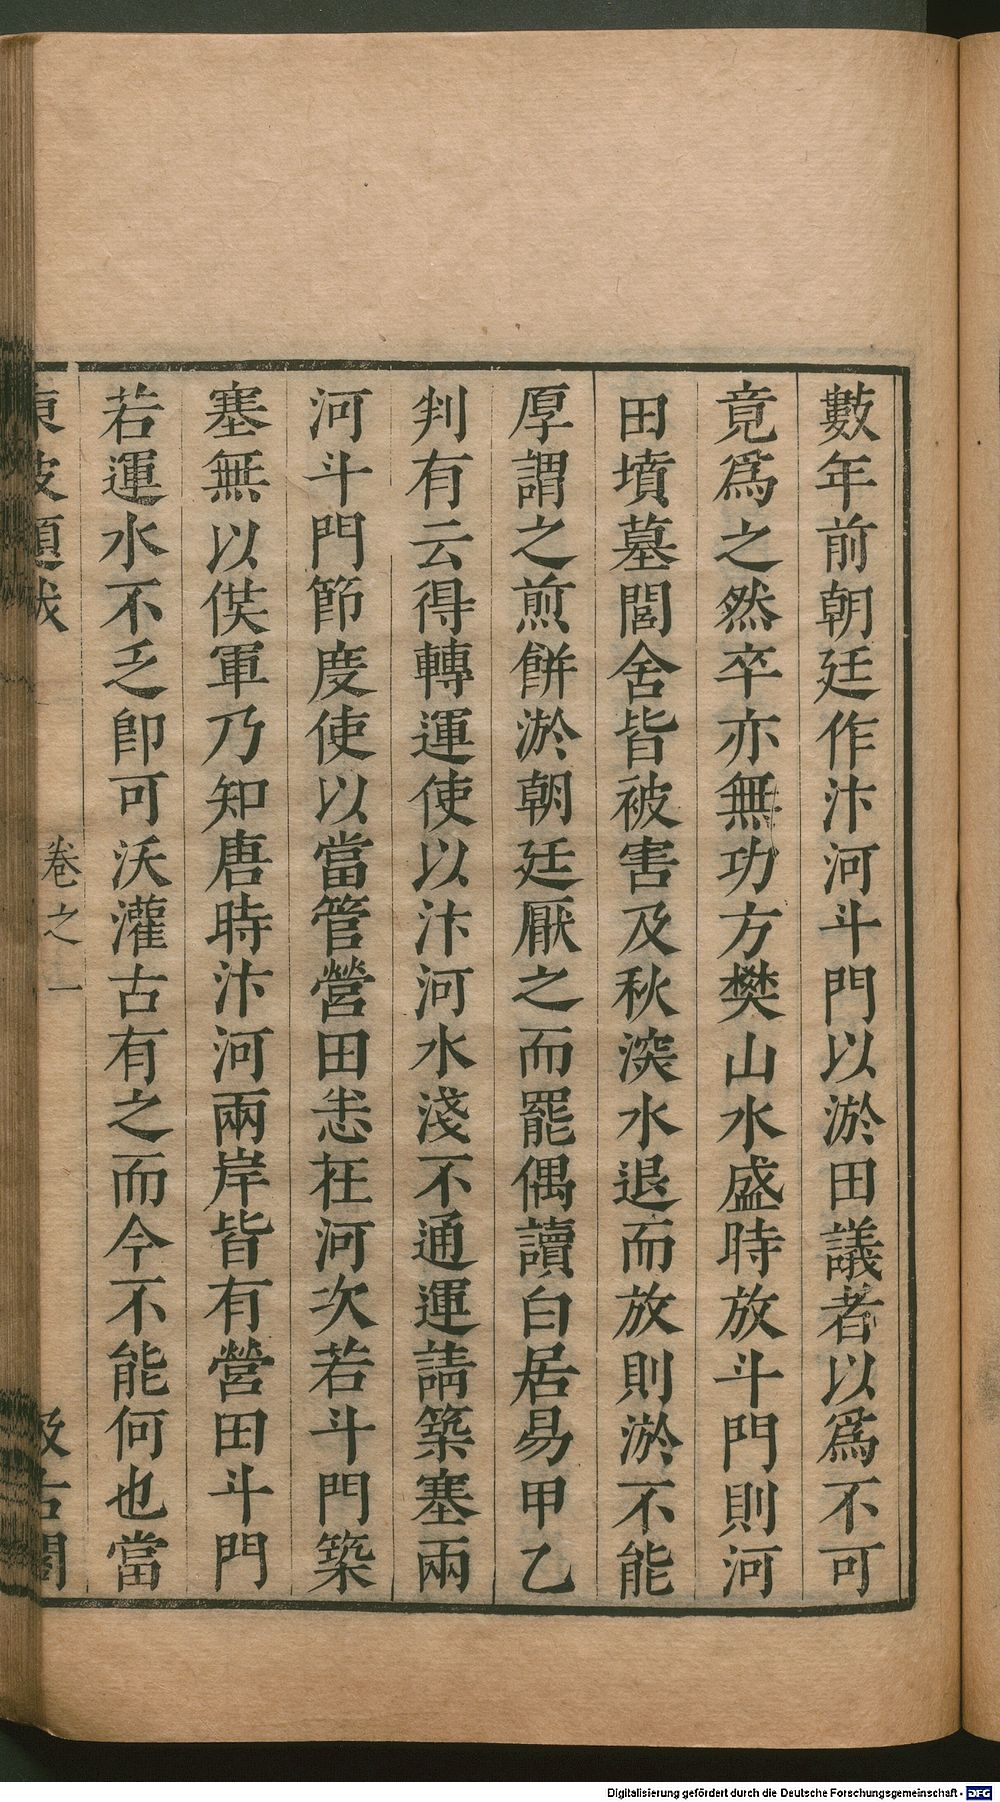 數年前朝廷作汴河斗門以淤田議者以爲不可
竟爲之然卒亦無功方樊山水盛時放斗門則河
田墳墓閭舍皆被害及秋深水退而放則淤不能
厚謂之煎餅淤朝廷厭之而罷偶讀白居易甲乙
判有云得轉運使以汴河水淺不通運請築塞兩
河斗門節度使以當管營田悉在河次若斗門築
塞無以供軍乃知唐時汴河兩岸皆有營田斗門
若運水不乏卽可沃灌古有之而今不能何也當
東坡題跋
卷之一
汲古閣
Digitalisierung gefördert durch die Deutsche Forschungsgemeinschaft - DFG